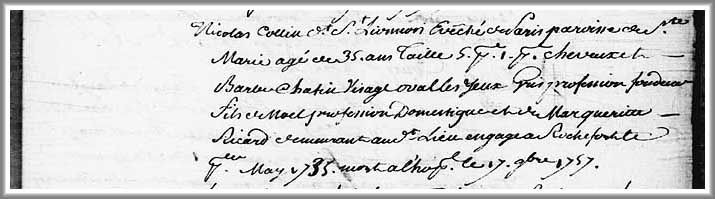 Nicolas Collin de St. Evêché de Paris paroisse de Ste
Marie agé de 35. ans Taille 5. pd. 1. pce. cheveux et
Barbe Chatin Visage ovalles yeux Gris profession fondeur
Fils de Noel profession Domestique et de Marguerite
Ricard demeurant aud. Lieu engagé a Rochefort le
per. May 1735. mort a l'hopl. le 17. 9bre 1757.